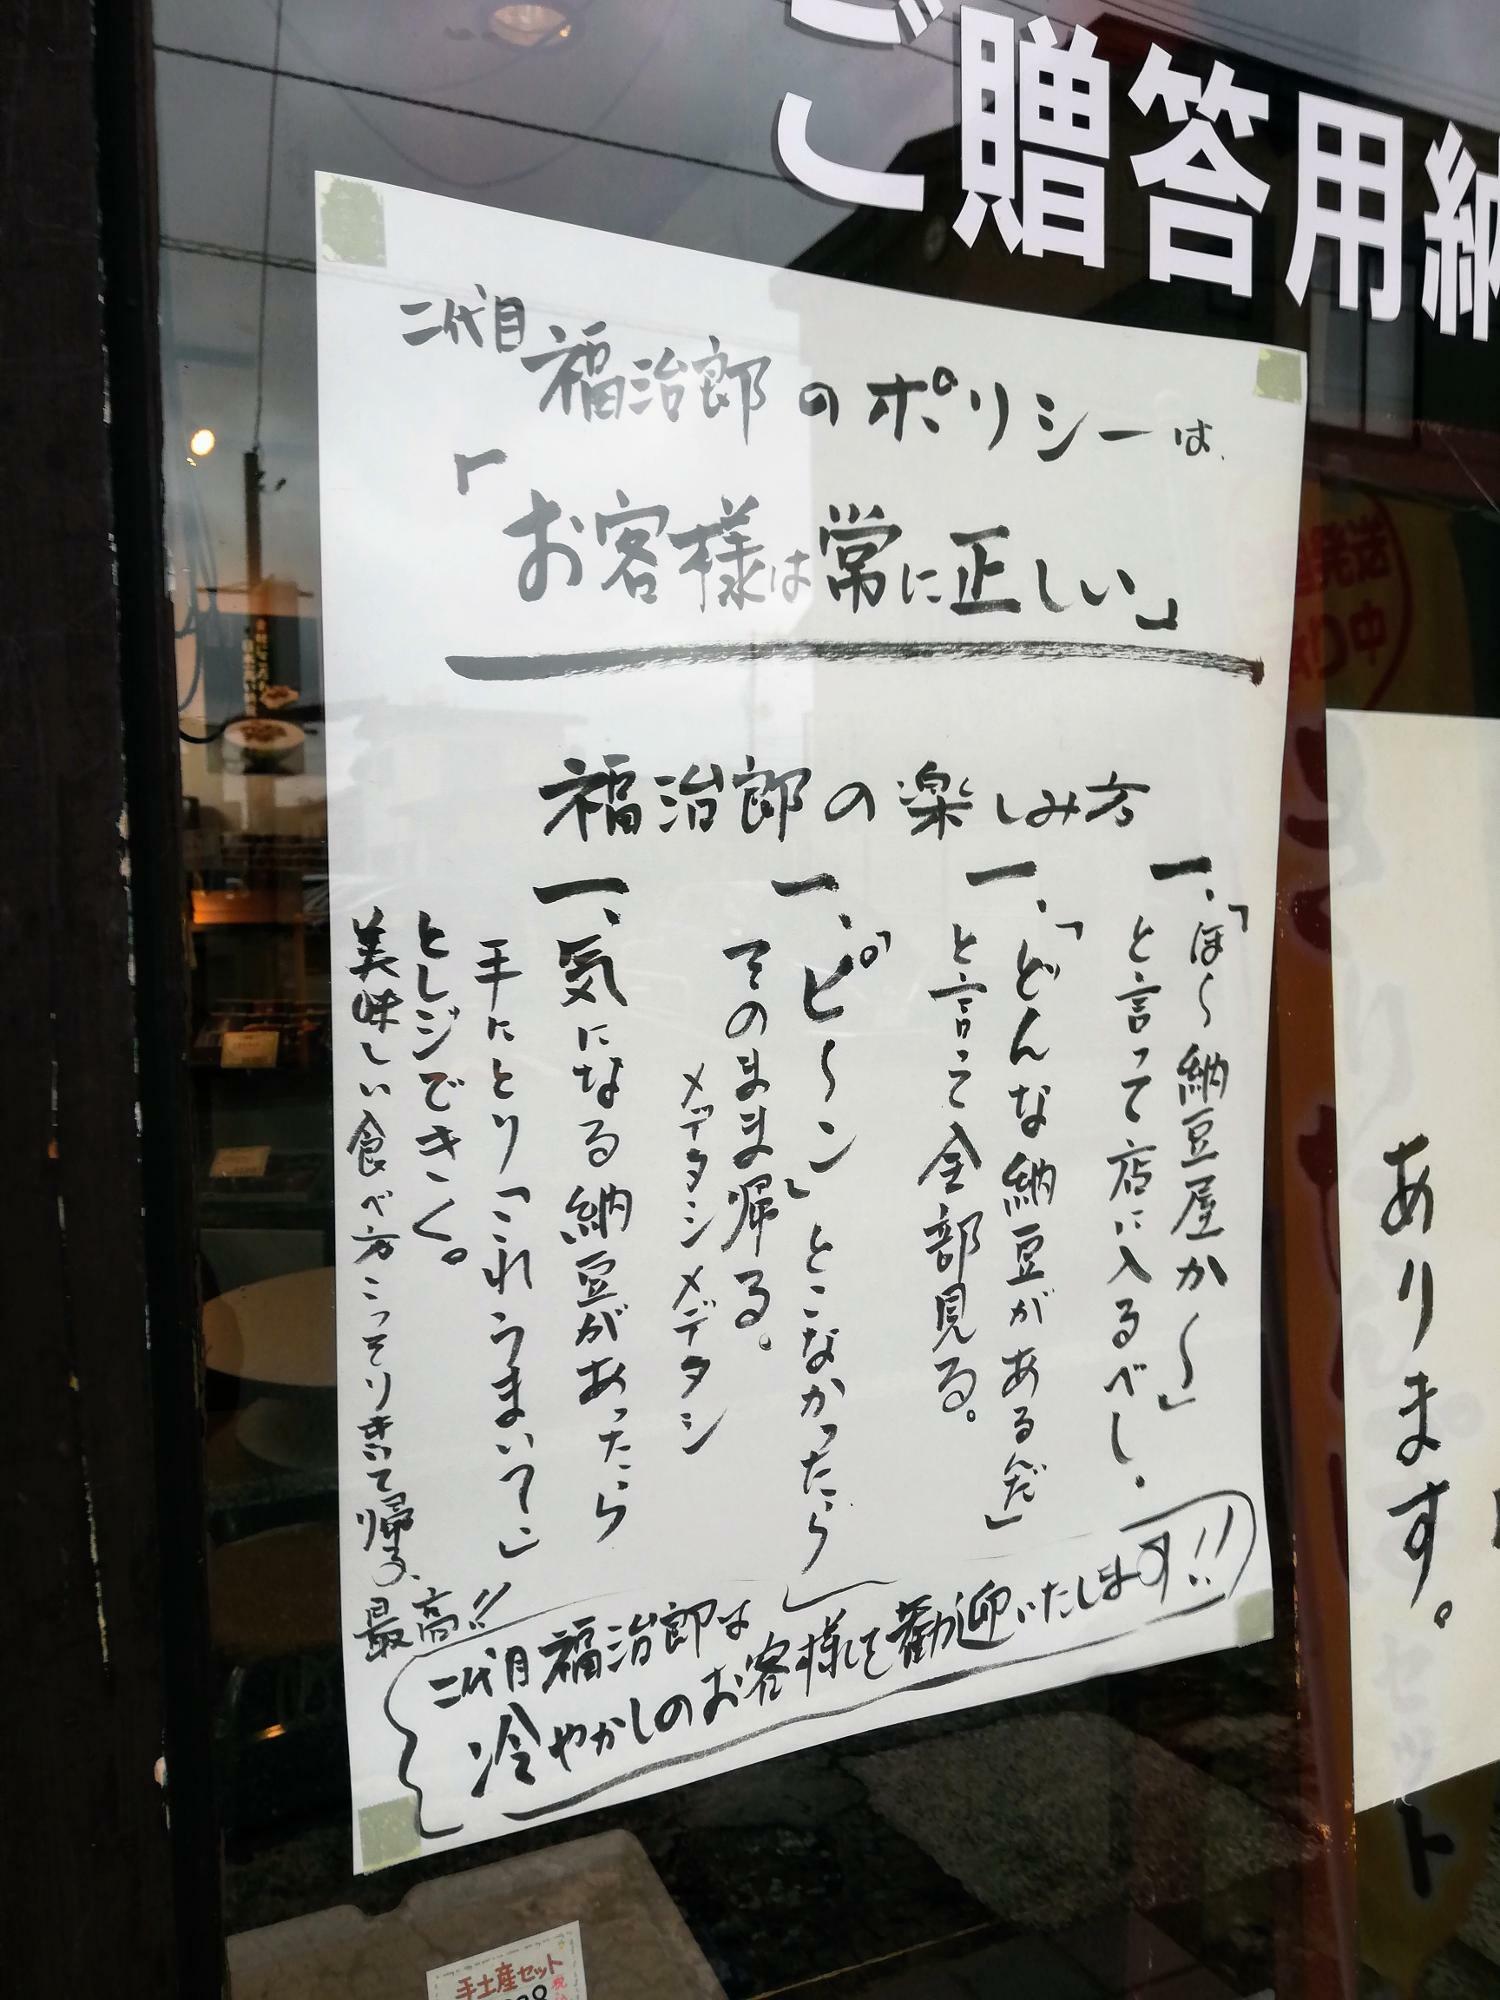 ご贈答用納
二代目福治郎のポリシーは、
「お客様は常に正しい」
福治郎の楽しみ方
一、「ほ〜納豆屋か〜」
と言って店に入るべし。
一、「どんな納豆があるだ」
と言って全部見る。
一、「ピ〜ン」とこなかったら
そのまま帰る。
メデタシメデタシ
一、気になる納豆があったら
手にとり「これうまいて」
とレジできく。
美味しい食べ方こっそりきいて帰る、最高!!
二代目福治郎は
冷やかしのお客様も大歓迎いたします!!
発送
中
あります。
セット
手土産セット